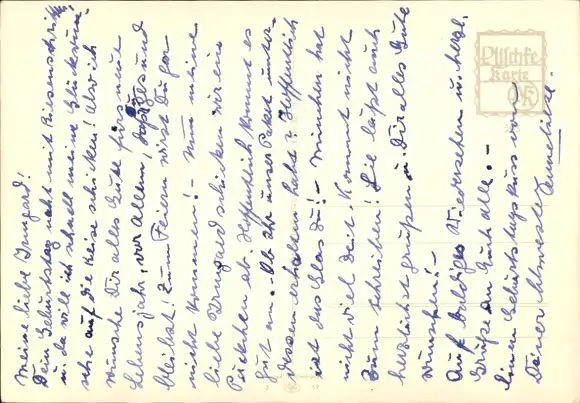 Meine liebe Irmgard!
Dein Geburtstag naht mit Riesenschritten,
u. da will ich schnell meine Glückwün-
sche auf die Reise schicken! Also ich
wünsche Dir alles Gute fürs neue
Lebensjahr, vor allem, daß Du gesund
bleibst! Zum Feiern wirst Du gar
nicht kommen! – Nun meine
liebe Irmgard schicken wir ein
Päckchen ab. Hoffentlich kommt es
gut an. – Ob Ihr unser Paket unter-
dessen erhalten habt? Hoffentlich
ist das Glas Du! – München hat
nicht viel Zeit, kommt nicht
zum schreiben! Sie läßt auch
herzlichst grüßen u. Dir alles Gute
wünschen! –
Auf baldiges Wiedersehen u. herzl.
Grüße an Euch alle. –
Einen Geburtstagskuss von
Deiner Schwester
Anneliese.
Plischke
Karte